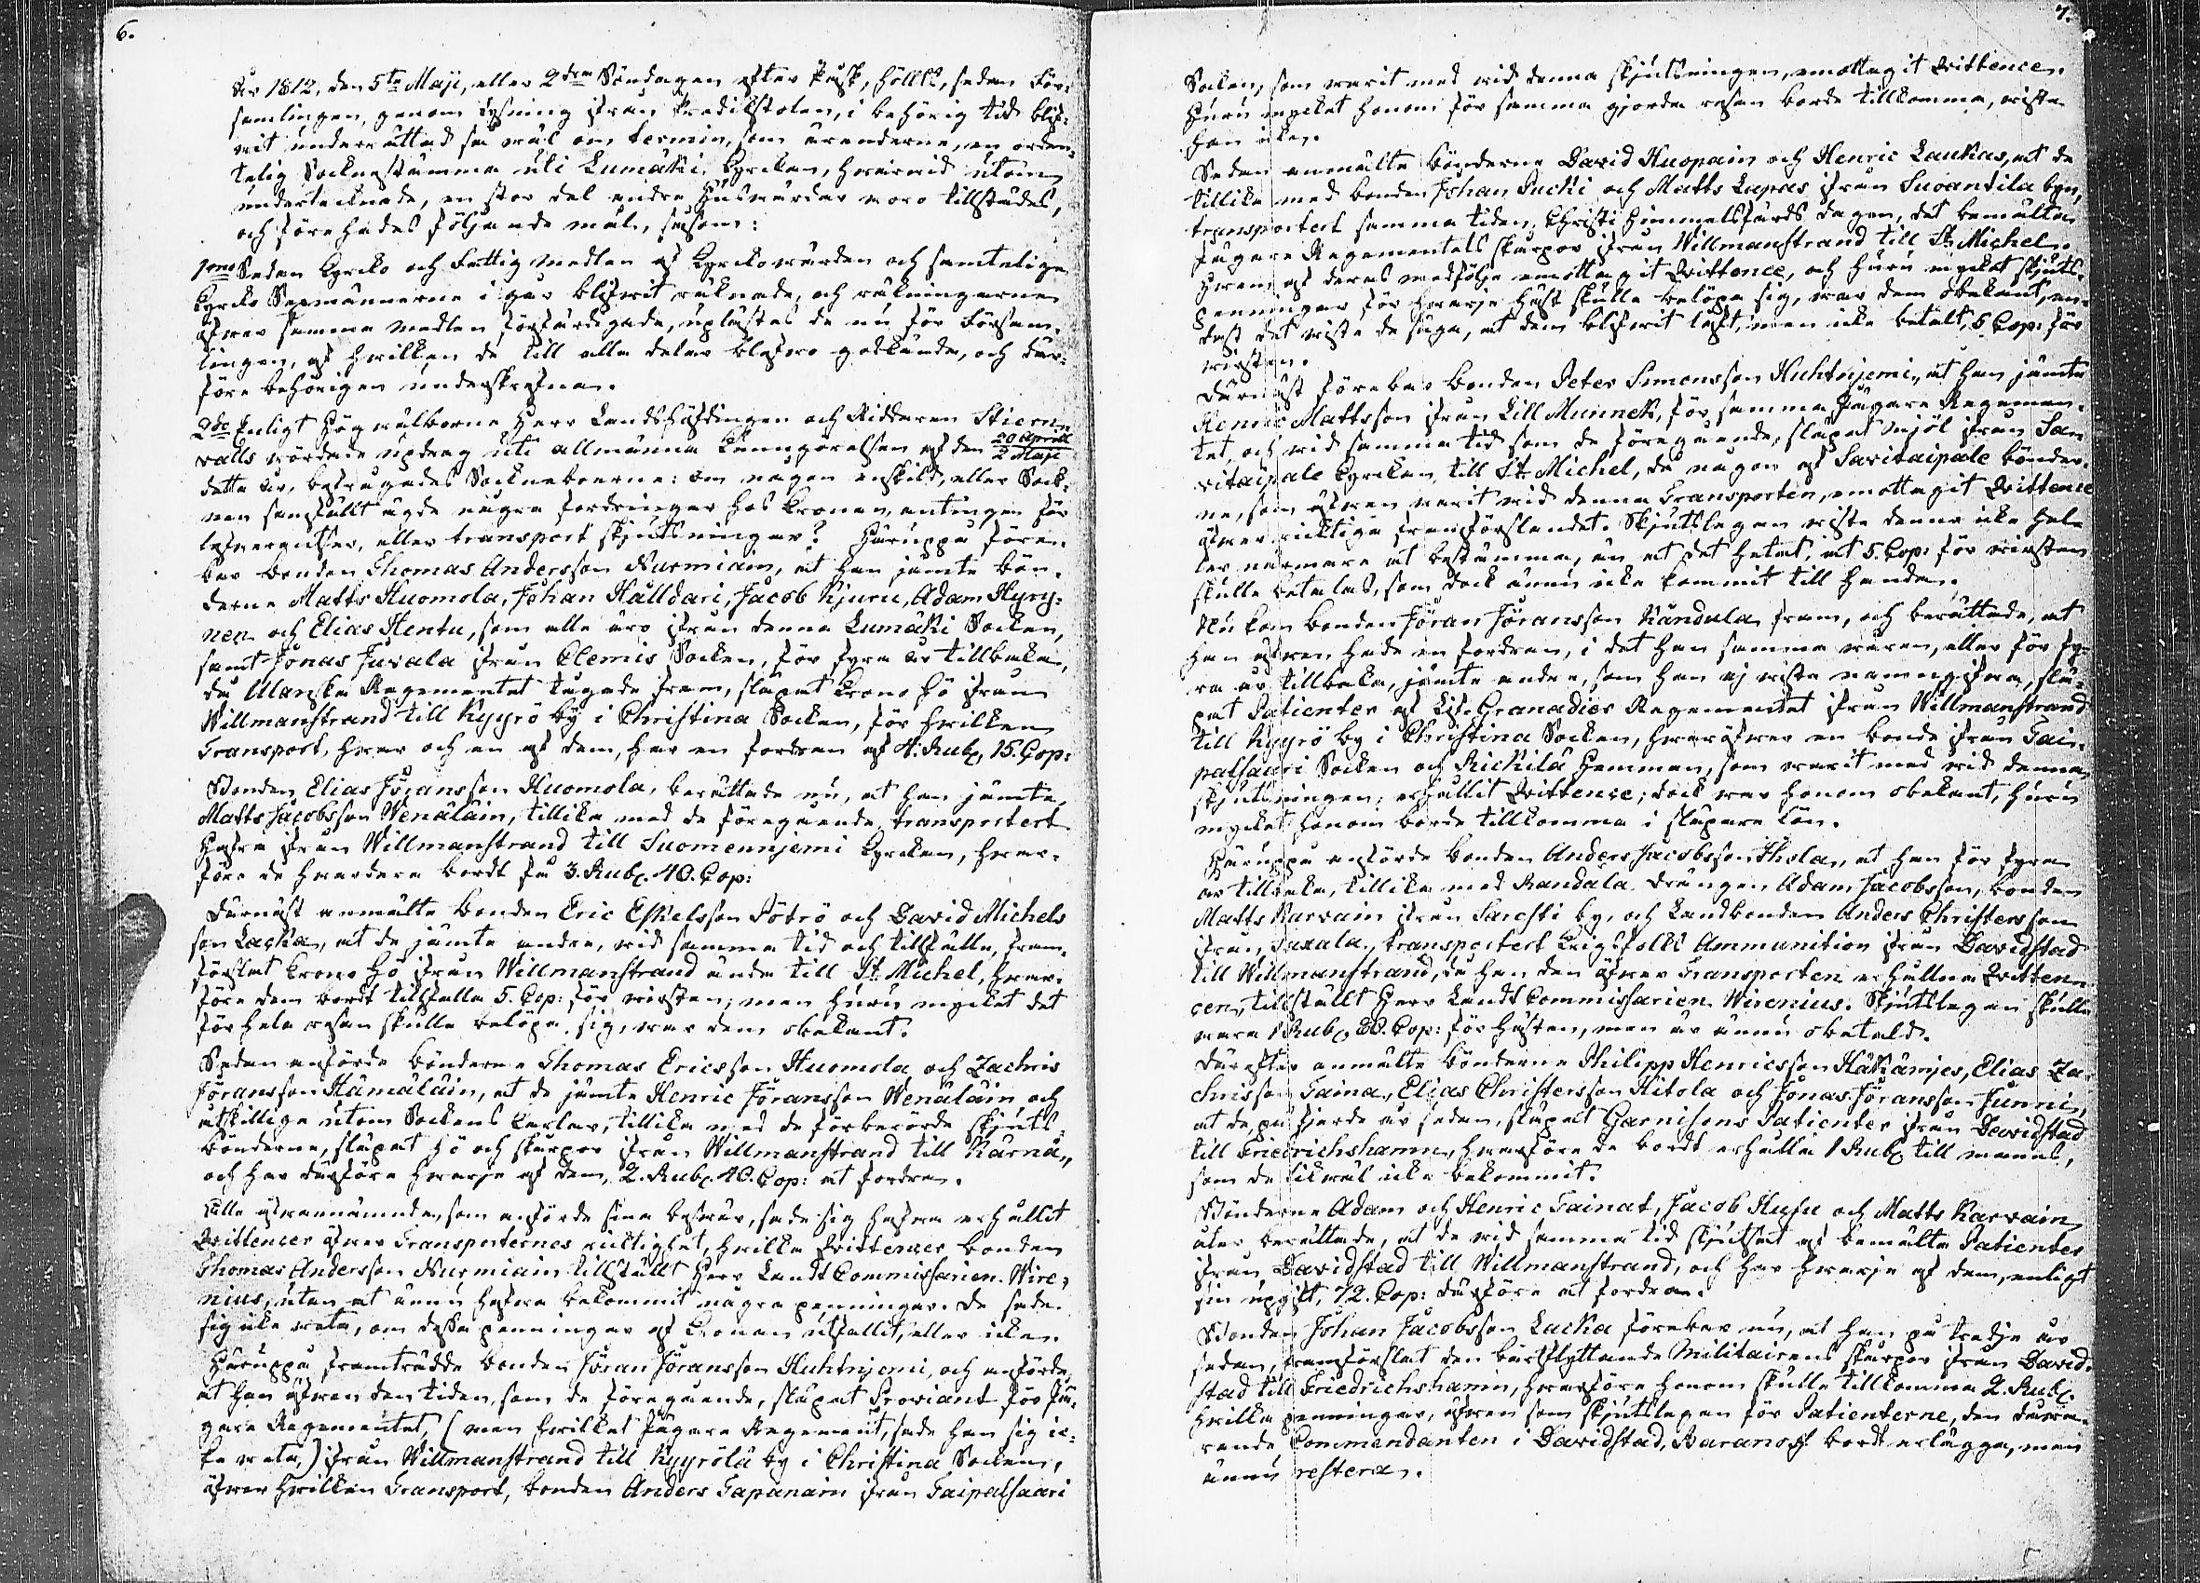 6.
År 1812, den 5te Maji, eller 2dra Söndagen efter Påsk, hölls, sedan För-
samlingen, genom lysning ifrån Predikstolen, i behörig tid blif-
vit underrättad så väl om termin, som ärenderne, en orden-
telig Sockne stämma uti Lumäki Kyrckan, hvarvid utom
undertecknade, en stor del andre Husvärdar voro tillstädes,
och förehades följande mål, såsom:
1mo Sedan Kyrcko och Fattig medlen af Kyrckovärden och samtelige
Kyrcko Sexmännerne i går blifvit räknade, och räkningarne
öfver samma medlen förfärdigade, uplästes de nu för Försam-
lingen, af hvilken de till alla delar blefvo godkände, och där-
före behörigen underskrefna.
2do Enligt Högvälborne Herr Landshöfdingen och Riddaren Stiern-
valls vördade updrag uti allmänna Kungörelsen af den 20 April
2 Maji
detta år, befrågades Sockneboerne: om någon enskild, eller Sock-
nen samfällt ägde några fordringar hos Kronan, antingen för
lefverantser, eller transport skjutsningar? Häruppå före-
bar bonden Thomas Andersson Nurmiain, at han jämte bön-
derne Matts Huomola, Johan Halldari, Jacob Kjuru, Adam Hyry-
nen och Elias Hentu, som alle äro ifrån denna Lumäki Socken,
samt Jonas Juvala ifrån Clemis Socken, för fyra år tillbaka,
då Ulanska Regementet tågade fram, släpat Krono hö ifrån
Willmanstrand till Kyyrö by i Christina Socken, för hvilken
Transport, hvar och en af dem, har en fordran af 4. Rub. 15. Cop:
Bonden Elias Jöransson Huomola, berättade nu, at han jämte
Matts Jacobsson Wenäläin, tillika med de föregående, transporterat
Hafra ifrån Willmanstrand till Suomennjemi Kyrckan, hvar-
före de hvardera bordt få 3. Rub. 40. Cop:
Därnäst anmälte bonden Eric Eskelsson Sötrö och David Michels
son Lacka, at de jämte andre, vid samma tid och tillfälle, fram-
förslat Krono hö ifrån Willmanstrand ända till St. Michel, hvar-
före dem bordt tillfalla 5. Cop: för virsten, men huru mycket det
för hela resan skulle belöpa sig, var dem obekant.
Sedan anförde bönderne Thomas Ericsson Huomola och Zachris
Jöransson Hämäläin, at de jämte Henric Jöransson Wenäläin och
åtskillige utom Sockens Karlar, tillika med de förberörde skjuts-
bönderne, släpat hö och skårpor ifrån Willmanstrand till Kärnä,
och har därföre hvarje af dem, 2. Rub. 40. Cop: at fordra.
Alle ofvannämnde, som anförde sina besvär, sade sig hafva erhållit
Qvittencer öfver Transporternes riktighet, hvilka Qvittencer bonden
Thomas Andersson Nurmiain tillställt Herr Lands Commissarien Wire-
nius, utan at ännu hafva bekommit några penningar. De sade
sig icke veta, om dessa penningar af Kronan utfallit, eller icke.
Häruppå framträdde bonden Jöran Jöransson Huhtnjemi, och anförde,
at han äfven den tiden, som de föregående, släpat Proviant för Jä-
gare Regementet, (men hvilket Jägare Regement, sade han sig ic-
ke veta,) ifrån Willmanstrand till Kyyrölä by i Christina Socken,
öfver hvilken Transport, bonden Anders Tapanain ifrån Taipalsaari
7.
Socken, som varit med vid denna skjutsningen, emottagit Qvittencen.
Huru mycket honom för samma gjorda resan borde tillkomma, viste
han icke.
Sedan anmälte bönderne David Huopain och Henric Laukas, at de
tillika med bonden Johan Sucki och Matts Lapas ifrån Suoantila by,
transporterat samma tiden, Christi Himmelsfärds dagen, det bemälta
Jägare Regementets skårpor ifrån Willmanstrand till St. Michel.
Hvem af deras medfölje emottagit Qvittence, och huru mycket skjuts-
penningar för hvarje häst skulle belöpa sig, var dem obekant, en-
dast det viste de säga, at dem blifvit låft, men icke betalt, 5 Cop: för
virsten.
Därnäst förebar bonden Peter Simonsson Huhtnjemi, at han jämte
Henric Mattsson ifrån Lill Munnek, för samma Jägare Regemen-
tet, och vid samma tid som de föregående, släpat mjöl ifrån Sa-
vitaipale Kyrckan till St. Michel, då någon af Savitaipale bönder-
ne, som äfven varit vid denna Transporten, emottagit Qvittence
öfver riktiga framförslandet. Skjutslegan viste denna icke hel-
ler närmare at bestämma, än at det hetat, at 5. Cop: för virsten
skulle betalas, som dock ännu icke kommit till handa.
Nu kom bonden Jöran Jöransson Kändula fram, och berättade, at
han äfven hade en fordran, i det han samma våren, eller för fy-
ra år tillbaka, jämte andre, som han ej viste namngifva, slä-
pat Patienter af Lif-Granadier Regementet ifrån Willmanstrand
till Kyyrö by i Christina Socken, hvaröfver en bonde ifrån Tai-
palsaari Socken och Rickilä Hemman, som varit med vid denna
skjutsningen, erhållit Qvittence; dock var honom obekant, huru
mycket honom borde tillkomma i släpare lön.
Häruppå anförde bonden Anders Jacobsson Ihola, at han för fyra
år tillbaka, tillika med Randala drängen Adam Jacobsson, bonden
Matts Karvain ifrån Sarcsti by, och Landbonden Anders Christersson
ifrån Juvala, transporterat Krigsfolks Ammunition ifrån Davidstad
till Willmanstrand, då han den öfver Transporten erhållna Qvitten-
cen, tillställt Herr Lands Commissarien Wirenius. Skjutslegan skulle
vara 1 Rub. 20. Cop: för hästen, men är ännu obetald.
Därefter anmälte bönderne Philipp Henricsson Häkämjes, Elias Za-
chrisson Taina, Elias Christersson Hitola och Jonas Jöransson Junni,
at de, på fjerde år sedan, släpat Garnisons Patienter ifrån Davidstad
till Friedrichshamn, hvarföre de bordt erhålla 1 Rub. till mannes,
som de likväl icke bekommit.
Bönderne Adam och Henric Tainat, Jacob Hufu och Matts Karvain
åter berättade, at de vid samma tid skjutsat af bemälta Patienter
ifrån Davidstad till Willmanstrand, och har hvarje af dem, enligt
sin upgift, 72. Cop: därföre at fordra.
Bonden Johan Jacobsson Lacka förebar nu, at han på tredje år
sedan, framförslat den bårtflyttande Militairens skårpor ifrån David-
stad till Friedrichshamn, hvarföre honom skulle tillkomma 2. Rub.
hvilka penningar, äfven som skjutslegan för Patienterne, den dåva-
rande Commendanten i Davidstad, Baranoff bordt erlägga, men
ännu restera.